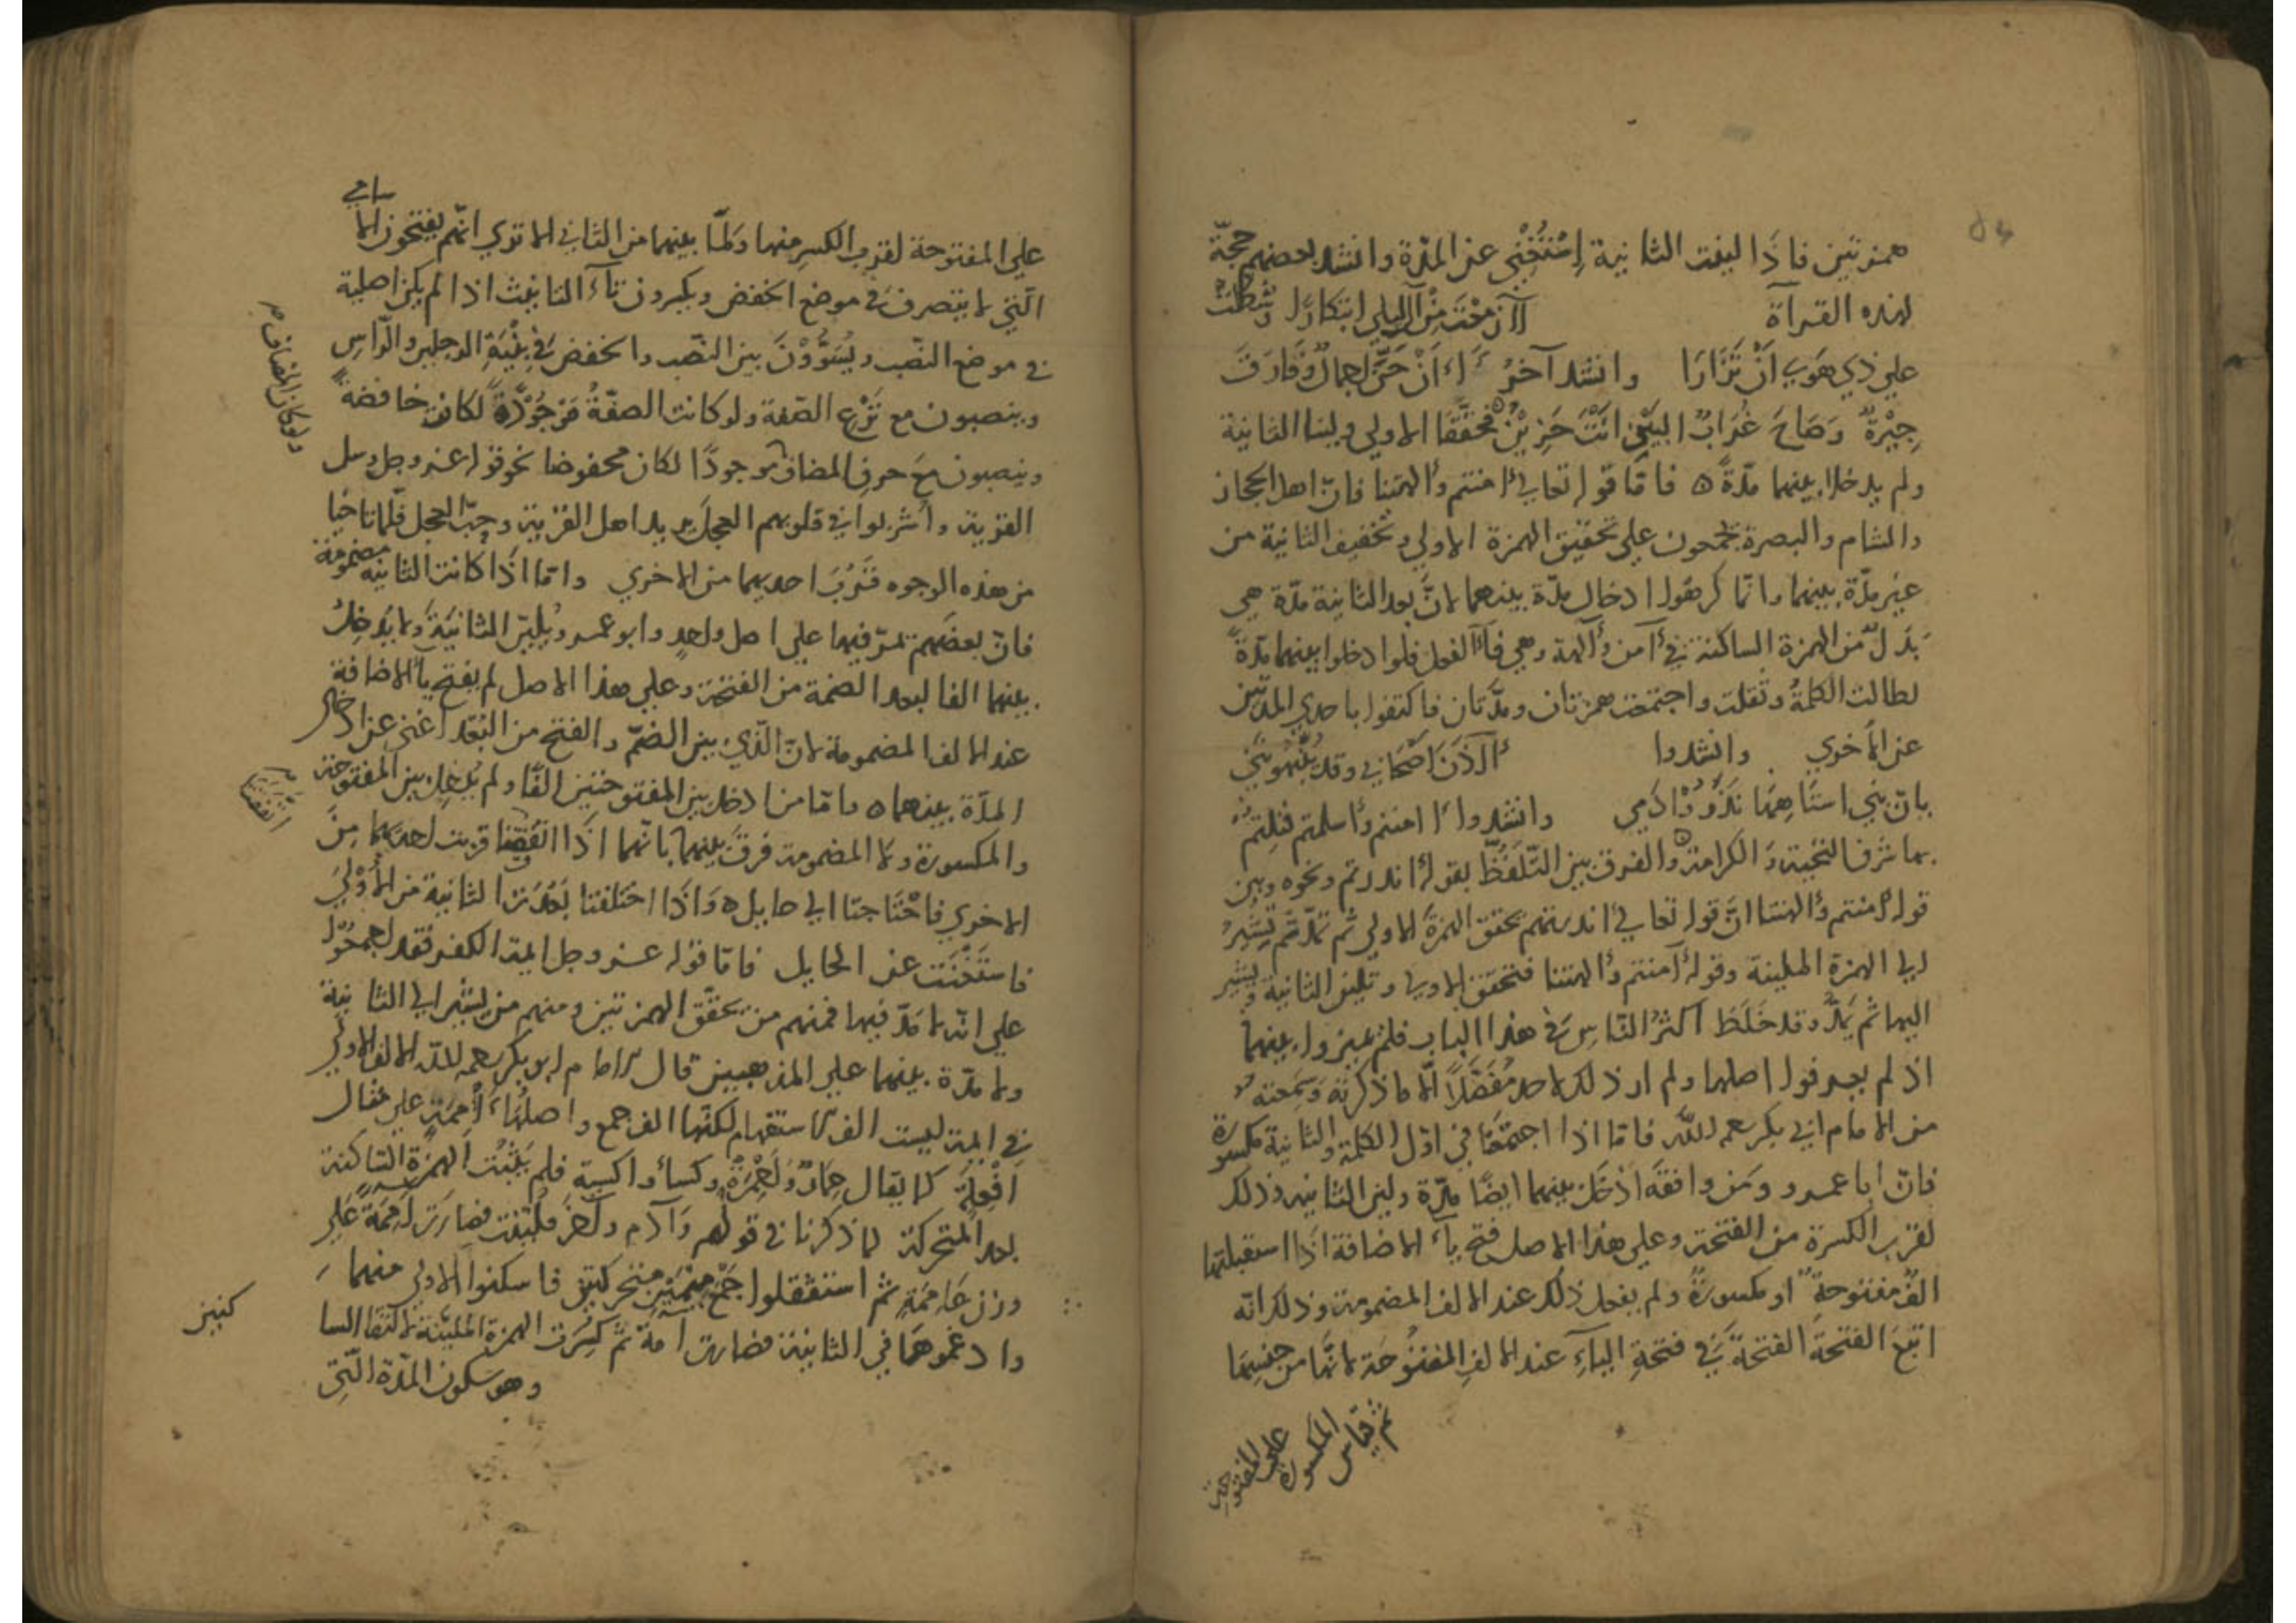 همزتين فاذا لينت الثانية اِسْتُغْنِي عن المدّة وانشد بعضهم حجّة
لهذه القرآة أأن مِنْ ليلي ابتكارًا وشطّت
علي ذي هَوي اَنْ تَزَارَا وانشد آخرُ أاَنْ حَنَّ اجمالٌ وفارَقَ
جِيْرَةٌ وَصَاحَ غُرابُ البَيْنِ انتَ حَزِيْنٌ فحَقَّقَا الاولي ولينا الثانية
ولم يدخلا بينهما مدّةً ه فامّا قوله تعالي أامنتم وأالهتنا فانّ اهل الحجاز
والشام والبصرة يجمعون علي تحقيق الهمزة الاولي وتخفيف الثانية من
غير مدّة بينهما وانما كرهوا ادخال مدّة بينهما لانّ بعد الثانية مدّة هي
بَدَلٌ من الهمزة الساكنة في أآمن وأآلهة وهي فاء الفعل فلو ادخلوا بينهما مدّةً
لطالت الكلمةُ وثقلت واجتمعت همزتان ومدّتان فاكتفوا باحدي المدّتين
عن الاخري وانشدوا أالآن اصحابي وقد
بانّ بني وانشدوا أامنتم وأاسلمتم فنلتم
بها شرف التحية والكرامة ه والفرق بين التلفّظ بقوله أانذرتم ونحوه وبين
قوله أامنتم وأالهتنا انّ قوله تعالي أانذرتهم تحقق الهمزة الاولي ثم تمدّ ثم تُشِيْرُ
الي الهمزة الملينة وقوله أآمنتم وأالهتنا فتحقق الاولي وتلين الثانية وتشير
اليها ثم تمدّ وقد خَلَطَ اكثرُ النّاس في هذا الباب فلم يميزوا بينهما
اذ لم يعرفوا اصلها ولم ار ذلك لاحد مُفَصَّلًا الّا ما ذكرته وَسَمِعته
من الامام ابي بكر رحمه الله فامّا اذا اجتمعَتا في اوّل الكلمة والثانية مكسورة
فانّ ابا عمرو ومَن وافقه اَدْخَلَ بينهما ايضًا مدّة وليّن الثانية وذلك
لقرب الكسرة من الفتحة وعلي هذا الاصل فتح ياء الاضافة اذا استقبلتها
الفٌ مفتوحةٌ او مكسورةٌ ولم يفعل ذلك عند الالف المضمومة وذلك انّه
اتبَعَ الفتحةَ الفتحةَ في فتحةِ الياءِ عند الالفِ المفتُوحَة لانّها من جنسِهَا
ثم قياس
المكسورة
علي المفتوحة
علي المفتوحة لقرب الكسر منها ولمّا بينهما من الا تري انّهم يفتحون الاسامي
الّتي لا ينصرف في موضع الخفض ويكسرون تاء التانيث اذا لم يكن اصلية
في موضع النّصب ويُسَوُّوْنَ بين النصب والخفض في الرجلين والرّاس
وينصبون مع نَزْعِ الصّفة ولو كانت الصفةُ مَوجُوْدَةً لكانت خافضةً
وينصبون مَعَ حرف المضاف موجودًا لكان مخفوضا نحو قوله عز وجل وسل
ولو كان المضاف
القرية وأُشربوا في قلوبهم العجل يريد اهل القرية وحبّ العجل فلمّا
من هذه الوجوه قَرُبَ احديهما من الاخري وامّا اذا كانت الثانية مضمومة
فانّ بعضهم تمرّ فيها علي اصل واحد وابو عمرو يُلَيِّن الثانيَةَ ولا يُدْخِلُ
بينهما الفا لبعد الضمة من الفتحة وعلي هذا الاصل لم يفتح ياء الاضافة
عند الالف المضمومة لانّ الّذي بين الضمّ والفتح من البُعد اغني عن ادخال
المدّة بينهما ه وامّا من ادخل بين المفتوحتين الفًا ولم يُدْخِل بين المفتوحة
والمكسورة ولا المضمومة فرقَ بينهما بانّهما اذا اتّفقتا قربت احديهما مِنَ
اتفقتا
الاخري فاحْتَاجتا الي حايل ه وَاذا اختلفتا بَعُدَت الثانية من الأُوْلَي
فاستَغْنَت عن الحايل فامّا قوله عز وجل ايمة الكفر فقد اجمعوا
علي انّه لا مَدَّ فيها فمنهم من يحقّق الهمزتين ومنهم من يشير الي الثانية
ولا مدّة بينهما علي المذهبين قال الامام ابو بكر رحمه الله الالف الاولي
في ايمة ليست الف الاستفهام لكنّها الف جمع واصلُهَا أَأْمِمَة علي مثال
اَفْعِلَة كما يقال حِمَارٌ وَاَحْمِرَةٌ وكساءٌ واكسية فلم يَثْبُتِ الهمزة الساكنة
بعد المتحركة لما ذكرنا في قولهم وآدم وآخر فليّنت فصارَت آمِمَةً عَلي
وزن عَامِمَةٍ ثم استثقلوا جَمْعَ مِيْمَيْنِ متحركتين فاسكنوا الاولي منهما
وادغموهَا في الثانية فصارت آمّةً ثم كُسِرَت الهمزة المليّنة لالتقا السا
كنين
وهو سكون المدّة الّتي